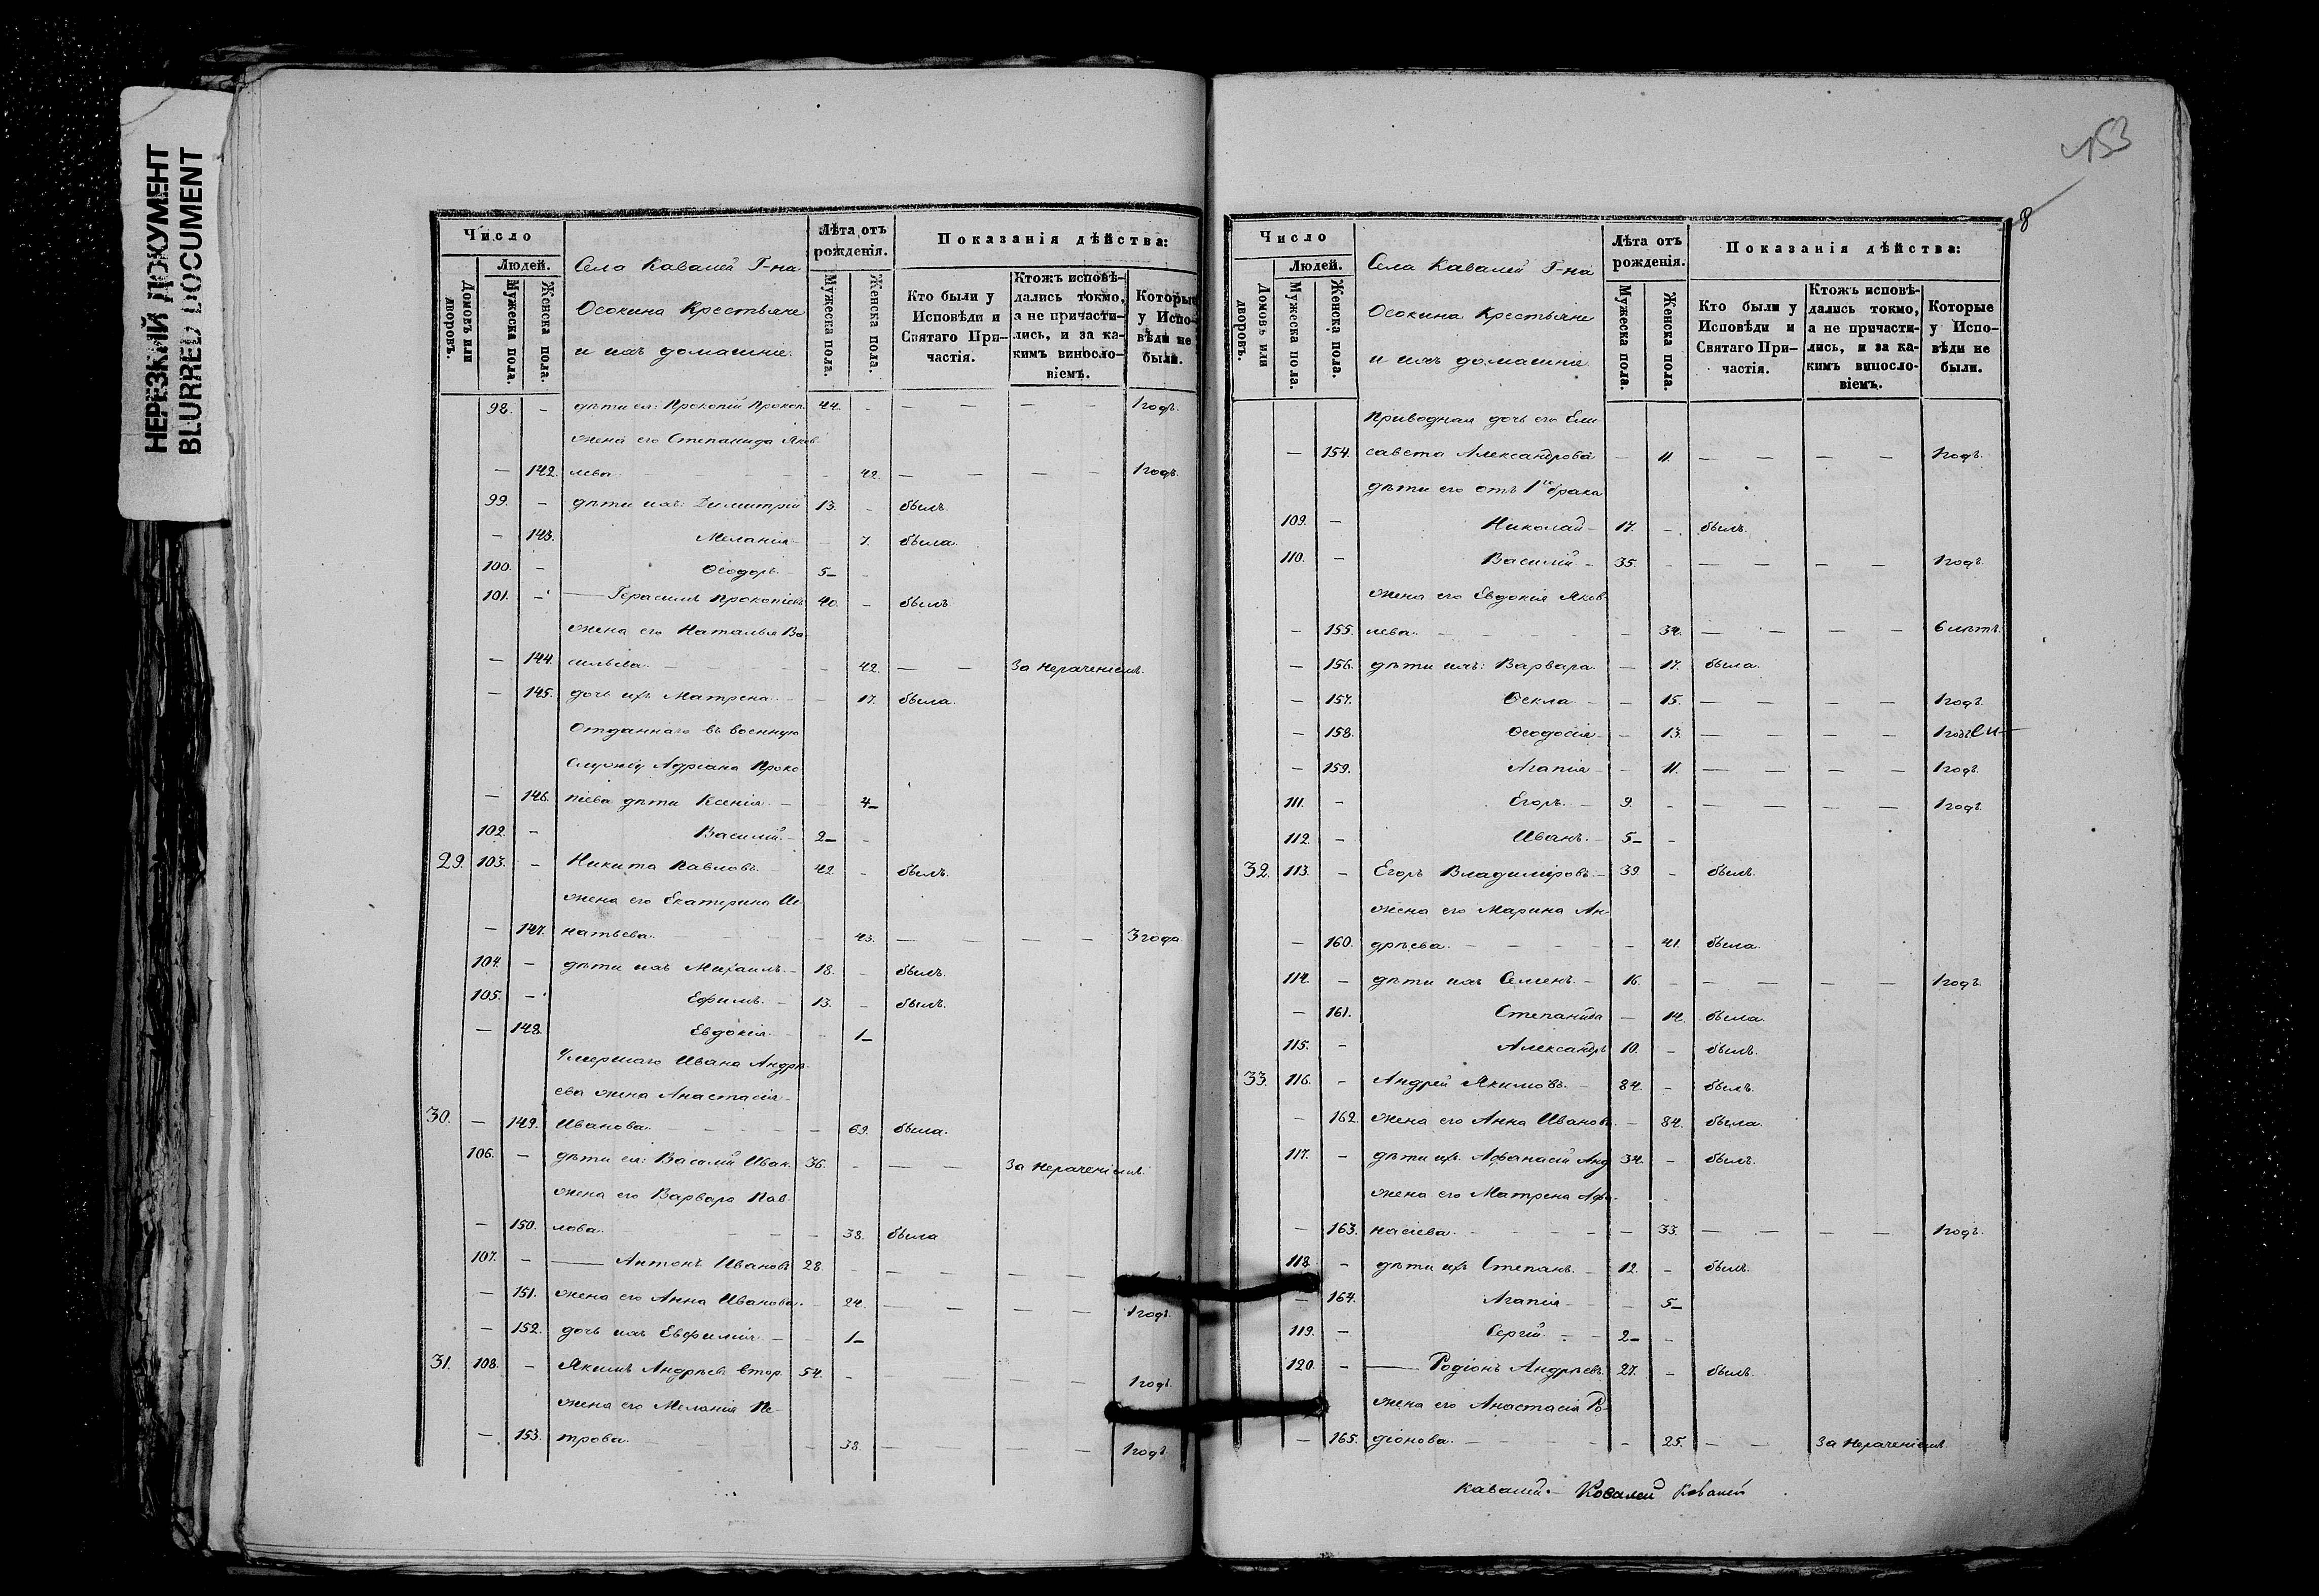 НЕРЕЗКИЙ ДОКУМЕНТ
BLURRED DOCUMENT
Число
Людей.
Домовъ или дворовъ.
Мужеска пола.
Женска пола.
Села Кавалей Г-на
Осокина Крестьяне
и ихъ домашніе.
Лѣта отъ рожденія.
Мужеска пола.
Женска пола.
Показанія дѣйства:
Кто были у Исповѣди и Святаго При-частія.
Ктожъ исповѣ-дались токмо, а не причасти-лись, и за ка-кимъ винosло-віемъ.
Которые у Испо-вѣди не были.
98. - дѣти ея: Прокопій Прокоп. 44. - — — — — 1 годъ.
жена его Степанида Яков-
— 142. лева - 42. — — — — 1 годъ.
99. - дѣти ихъ: Димитрій 13. - былъ.
— 143. Меланія - 7. была.
100. - Ѳеодоръ. 5 -
101. - — Герасимъ Прокопіевъ 40. - былъ
жена его Наталья Ва-
— 144. сильева. - 42. — — За нерачениемъ.
— 145. дочь ихъ Матрена - 17. была.
Отданнаго въ военную
Службу Адріана Проко-
— 146. піева дѣти Ксенія. - 4
102. - Василій. 2 -
29. 103. - Никита Павловъ. 42 - былъ.
жена его Екатерина Иг-
— 147. натьева. - 43. — — — — 3 года
104. - дѣти ихъ Михаилъ. 18. - былъ.
105. - Ефимъ. 13. - былъ.
— 148. Евдокія. - 1
Умершаго Ивана Андрѣ-
ева жена Анастасія
30. — 149. Иванова. - 69. была.
106. - дѣти ея: Василій Иван. 36. - — — За нерачениемъ.
жена его Варвара Пав-
— 150. лова. - 38. была
107. - — Антонъ Ивановъ 28. - — — — —
— 151. жена его Анна Иванова. - 24. — — — — 1 годъ.
— 152. дочь ихъ Евфимія - 1
31. 108. - Якимъ Андрѣевъ втор. 54. - — — — — 1 годъ.
жена его Меланія Пе-
— 153. трова. - 38 — — — — 1 годъ.
153
8
Число
Людей.
Домовъ или дворовъ.
Мужеска пола.
Женска пола.
Села Кавалей Г-на
Осокина Крестьяне
и ихъ домашніе
Лѣта отъ рожденія.
Мужеска пола.
Женска пола.
Показанія дѣйства:
Кто были у Исповѣди и Святаго При-частія.
Ктожъ исповѣ-дались токмо, а не причасти-лись, и за ка-кимъ винosло-віемъ.
Которые у Испо-вѣди не были.
Приводная дочь его Ели-
— 154. савета Александрова - 11. — — — — 1 годъ.
дѣти его отъ 1го брака
109. - Николай 17. - былъ.
110. - Василій 35. - — — — — 1 годъ.
жена его Евдокія Яков-
— 155. лева. - 34. — — — — 6 лѣтъ.
— 156. дѣти ихъ: Варвара. - 17. была.
— 157. Ѳекла - 15. — — — — 1 годъ.
— 158. Ѳеодосія - 13. — — — — 1 годъ
— 159. Агапія - 11. — — — — 1 годъ.
111. - Егоръ. 9. - — — — — 1 годъ.
112. - Иванъ. 5 -
32. 113. - Егоръ Владиміровъ. 39 - былъ.
жена его Марина Ан-
— 160. дрѣева. - 41. была.
114. - дѣти ихъ Семенъ. 16. - — — — — 1 годъ.
— 161. Степанида - 14. была.
115. - Александръ 10. - былъ.
33. 116. - Андрей Якимовъ. 84. - былъ.
— 162. жена его Анна Иванова. - 84. была.
117. - дѣти ихъ Афанасій Анд. 34. - былъ.
жена его Матрена Афа-
— 163. насіева. - 33. — — — — 1 годъ.
118. - дѣти ихъ Степанъ. 12. - былъ.
— 164. Агапія - 5
119. - Сергій. 2 -
120. - — Родіонъ Андрѣевъ. 27. - былъ.
жена его Анастасія Ро-
— 165. діонова. - 25. — — За нерачениемъ.
Кавалей. Ковалей Кавалей